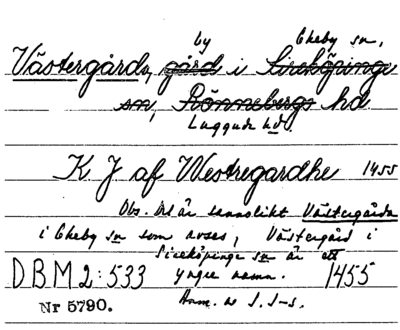 by Ekeby sn,
Västergårda, gård i Sireköpinge
sn, Rönnebergs hd.
Luggude hd.
K J af Westregardhe 1455
Obs. Det är sannolikt Västergårda
i Ekeby sn som avses, Västergård i
Sireköpinge sn är ett
DBM 2:533 yngre namn. 1455
Nr 5790. Anm. av I. I-s.